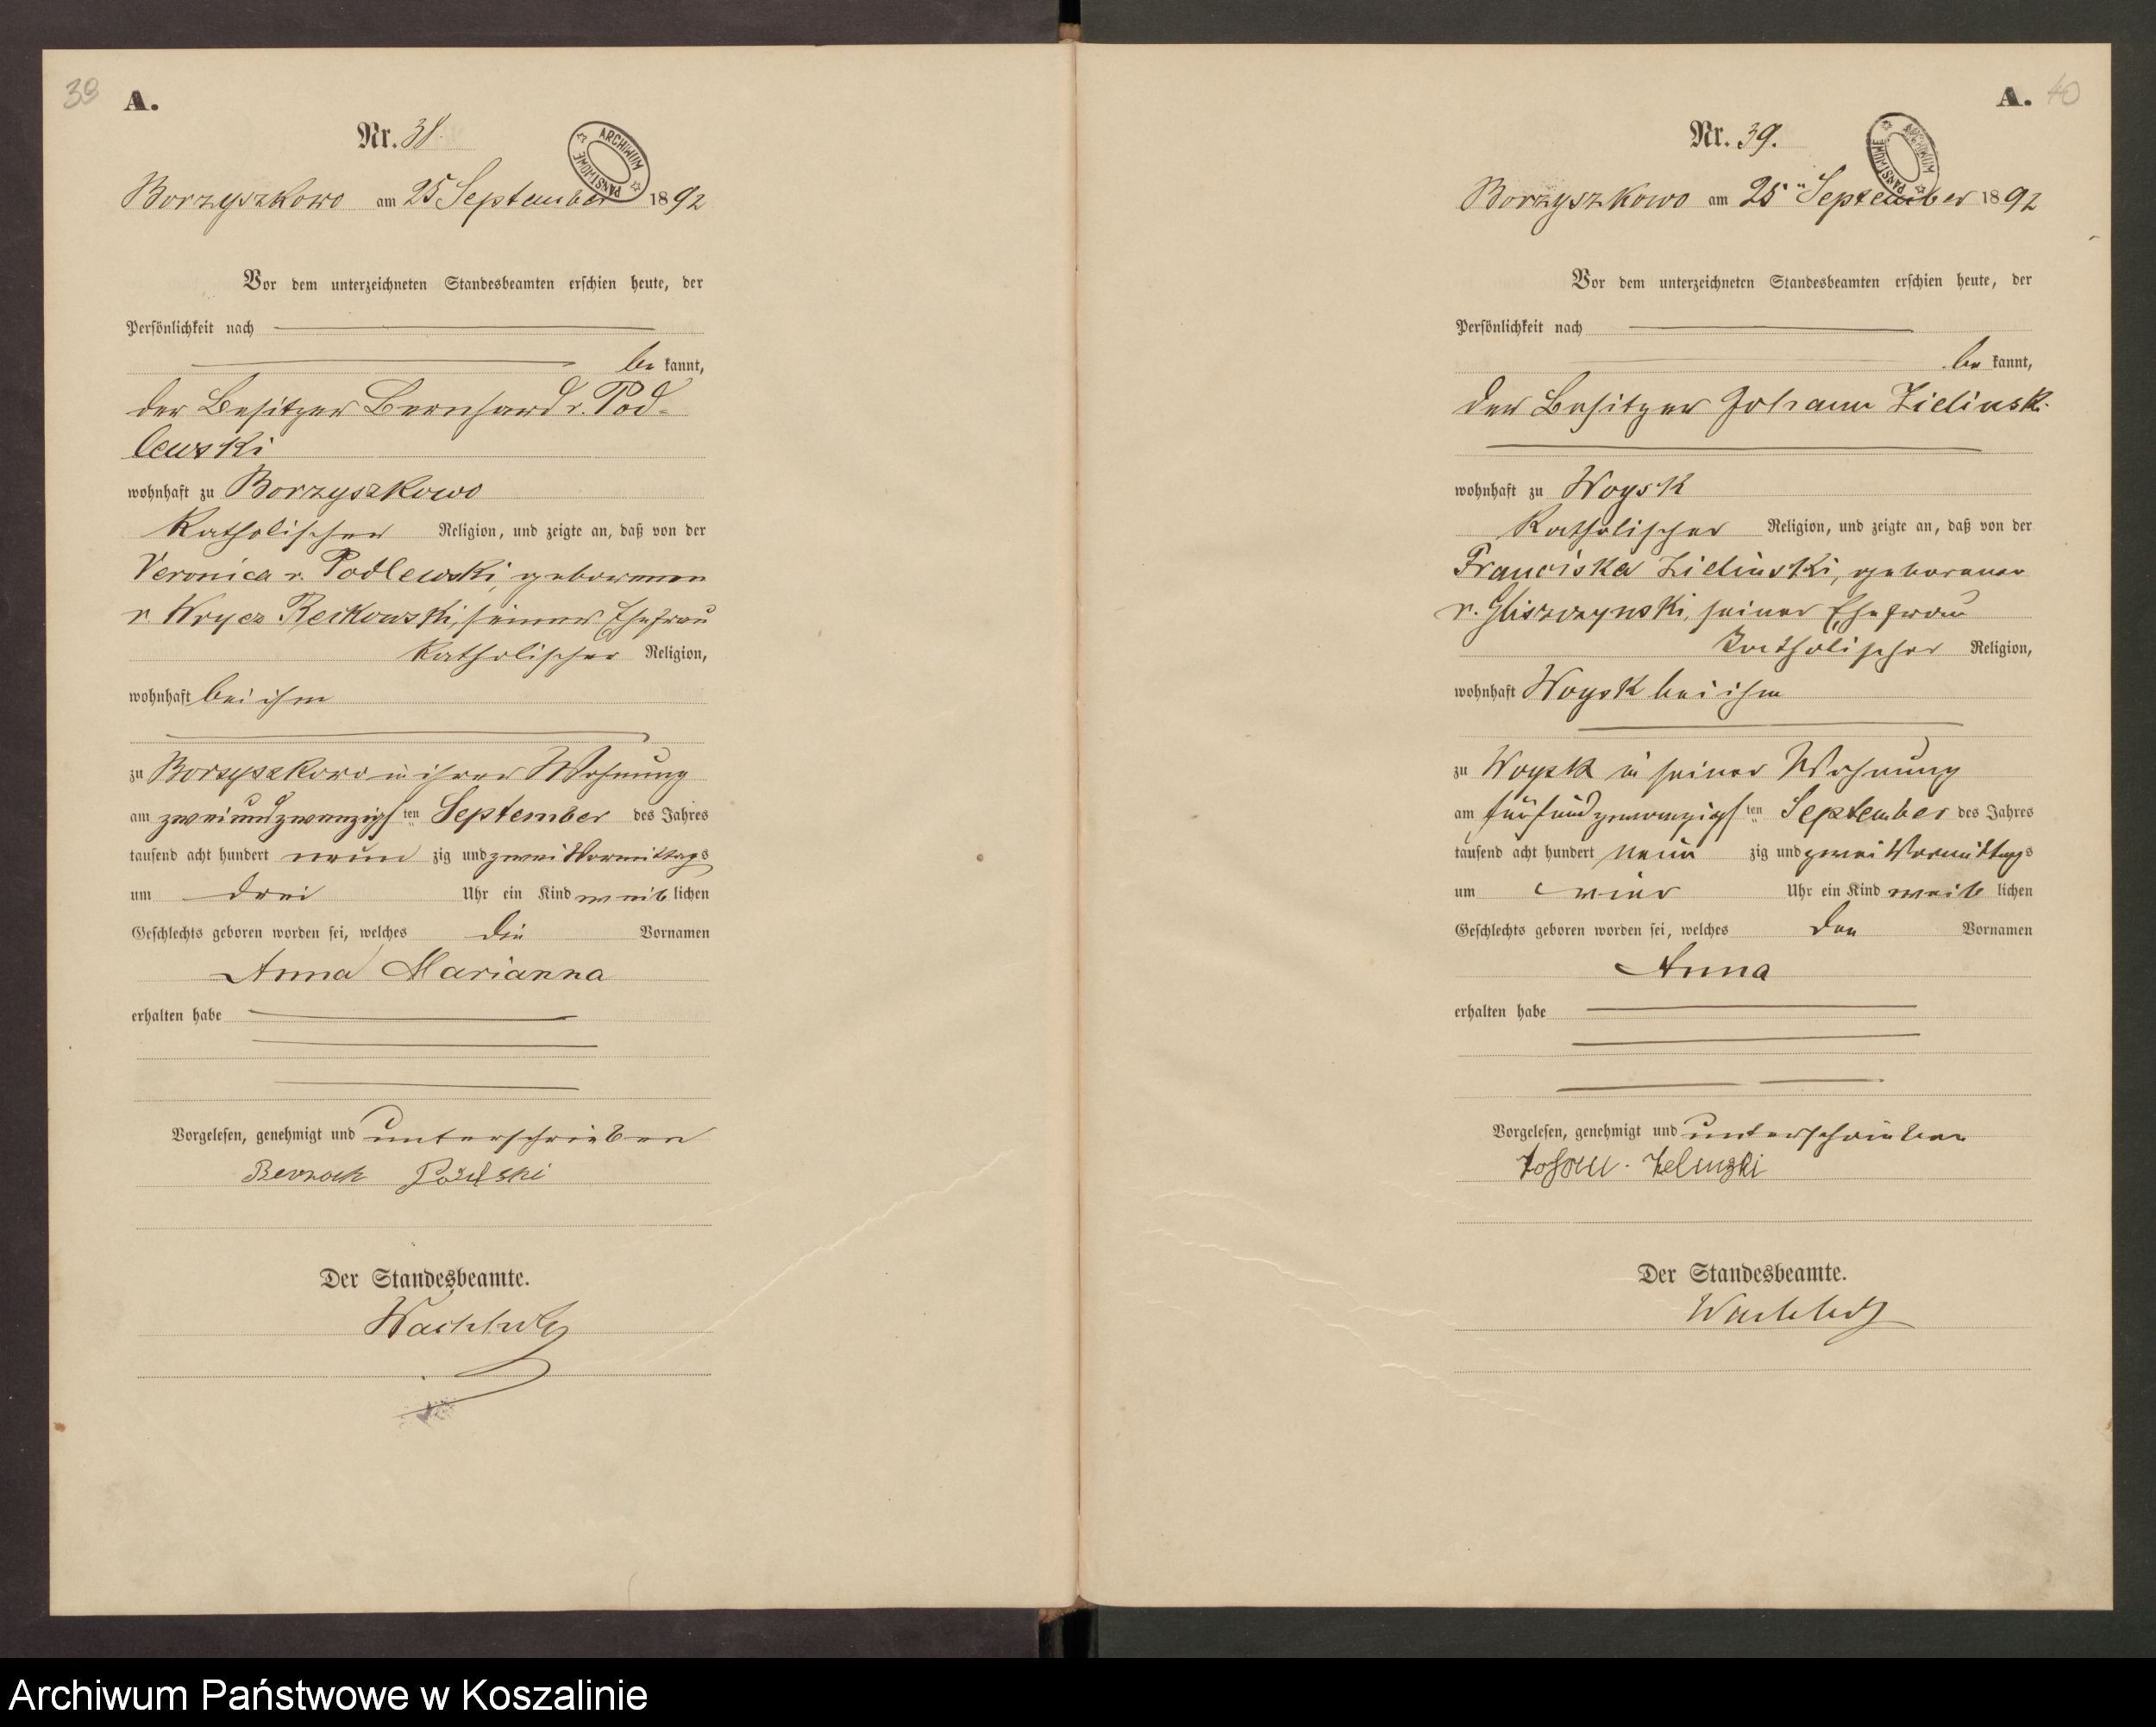 39
A.
Nr. 38.
ARCHIWUM PAŃSTWOWE
Borzyszkowo am 25 September 1892
Vor dem unterzeichneten Standesbeamten erschien heute, der
Persönlichkeit nach
be kannt,
der Besitzer Bernhard v. Pod-
lewski
wohnhaft zu Borzyszkowo
katholischer Religion, und zeigte an, daß von der
Veronica v. Podlewski, geborenen
v. Wrycz Reikowski, seiner Ehefrau
katholischer Religion,
wohnhaft bei ihm
zu Borzyszkowo in ihrer Wohnung
am zweiundzwanzigsten September des Jahres
tausend acht hundert neun zig und zwei Vormittags
um drei Uhr ein Kind weib lichen
Geschlechts geboren worden sei, welches die Vornamen
Anna Marianna
erhalten habe
Vorgelesen, genehmigt und unterschrieben
Der Standesbeamte.
A. 40
Nr. 39.
ARCHIWUM PAŃSTWOWE
Borzyszkowo am 25 September 1892
Vor dem unterzeichneten Standesbeamten erschien heute, der
Persönlichkeit nach
be kannt,
der Besitzer Johann Zielinski
wohnhaft zu Woysk
katholischer Religion, und zeigte an, daß von der
Franciska Zielinski, geborener
v. Gliszczynski, seiner Ehefrau
katholischer Religion,
wohnhaft Woysk bei ihm
zu Woysk in seiner Wohnung
am fünfundzwanzigsten September des Jahres
tausend acht hundert neun zig und zwei Vormittags
um vier Uhr ein Kind weib lichen
Geschlechts geboren worden sei, welches den Vornamen
Anna
erhalten habe
Vorgelesen, genehmigt und unterschrieben
Der Standesbeamte.
Archiwum Państwowe w Koszalinie